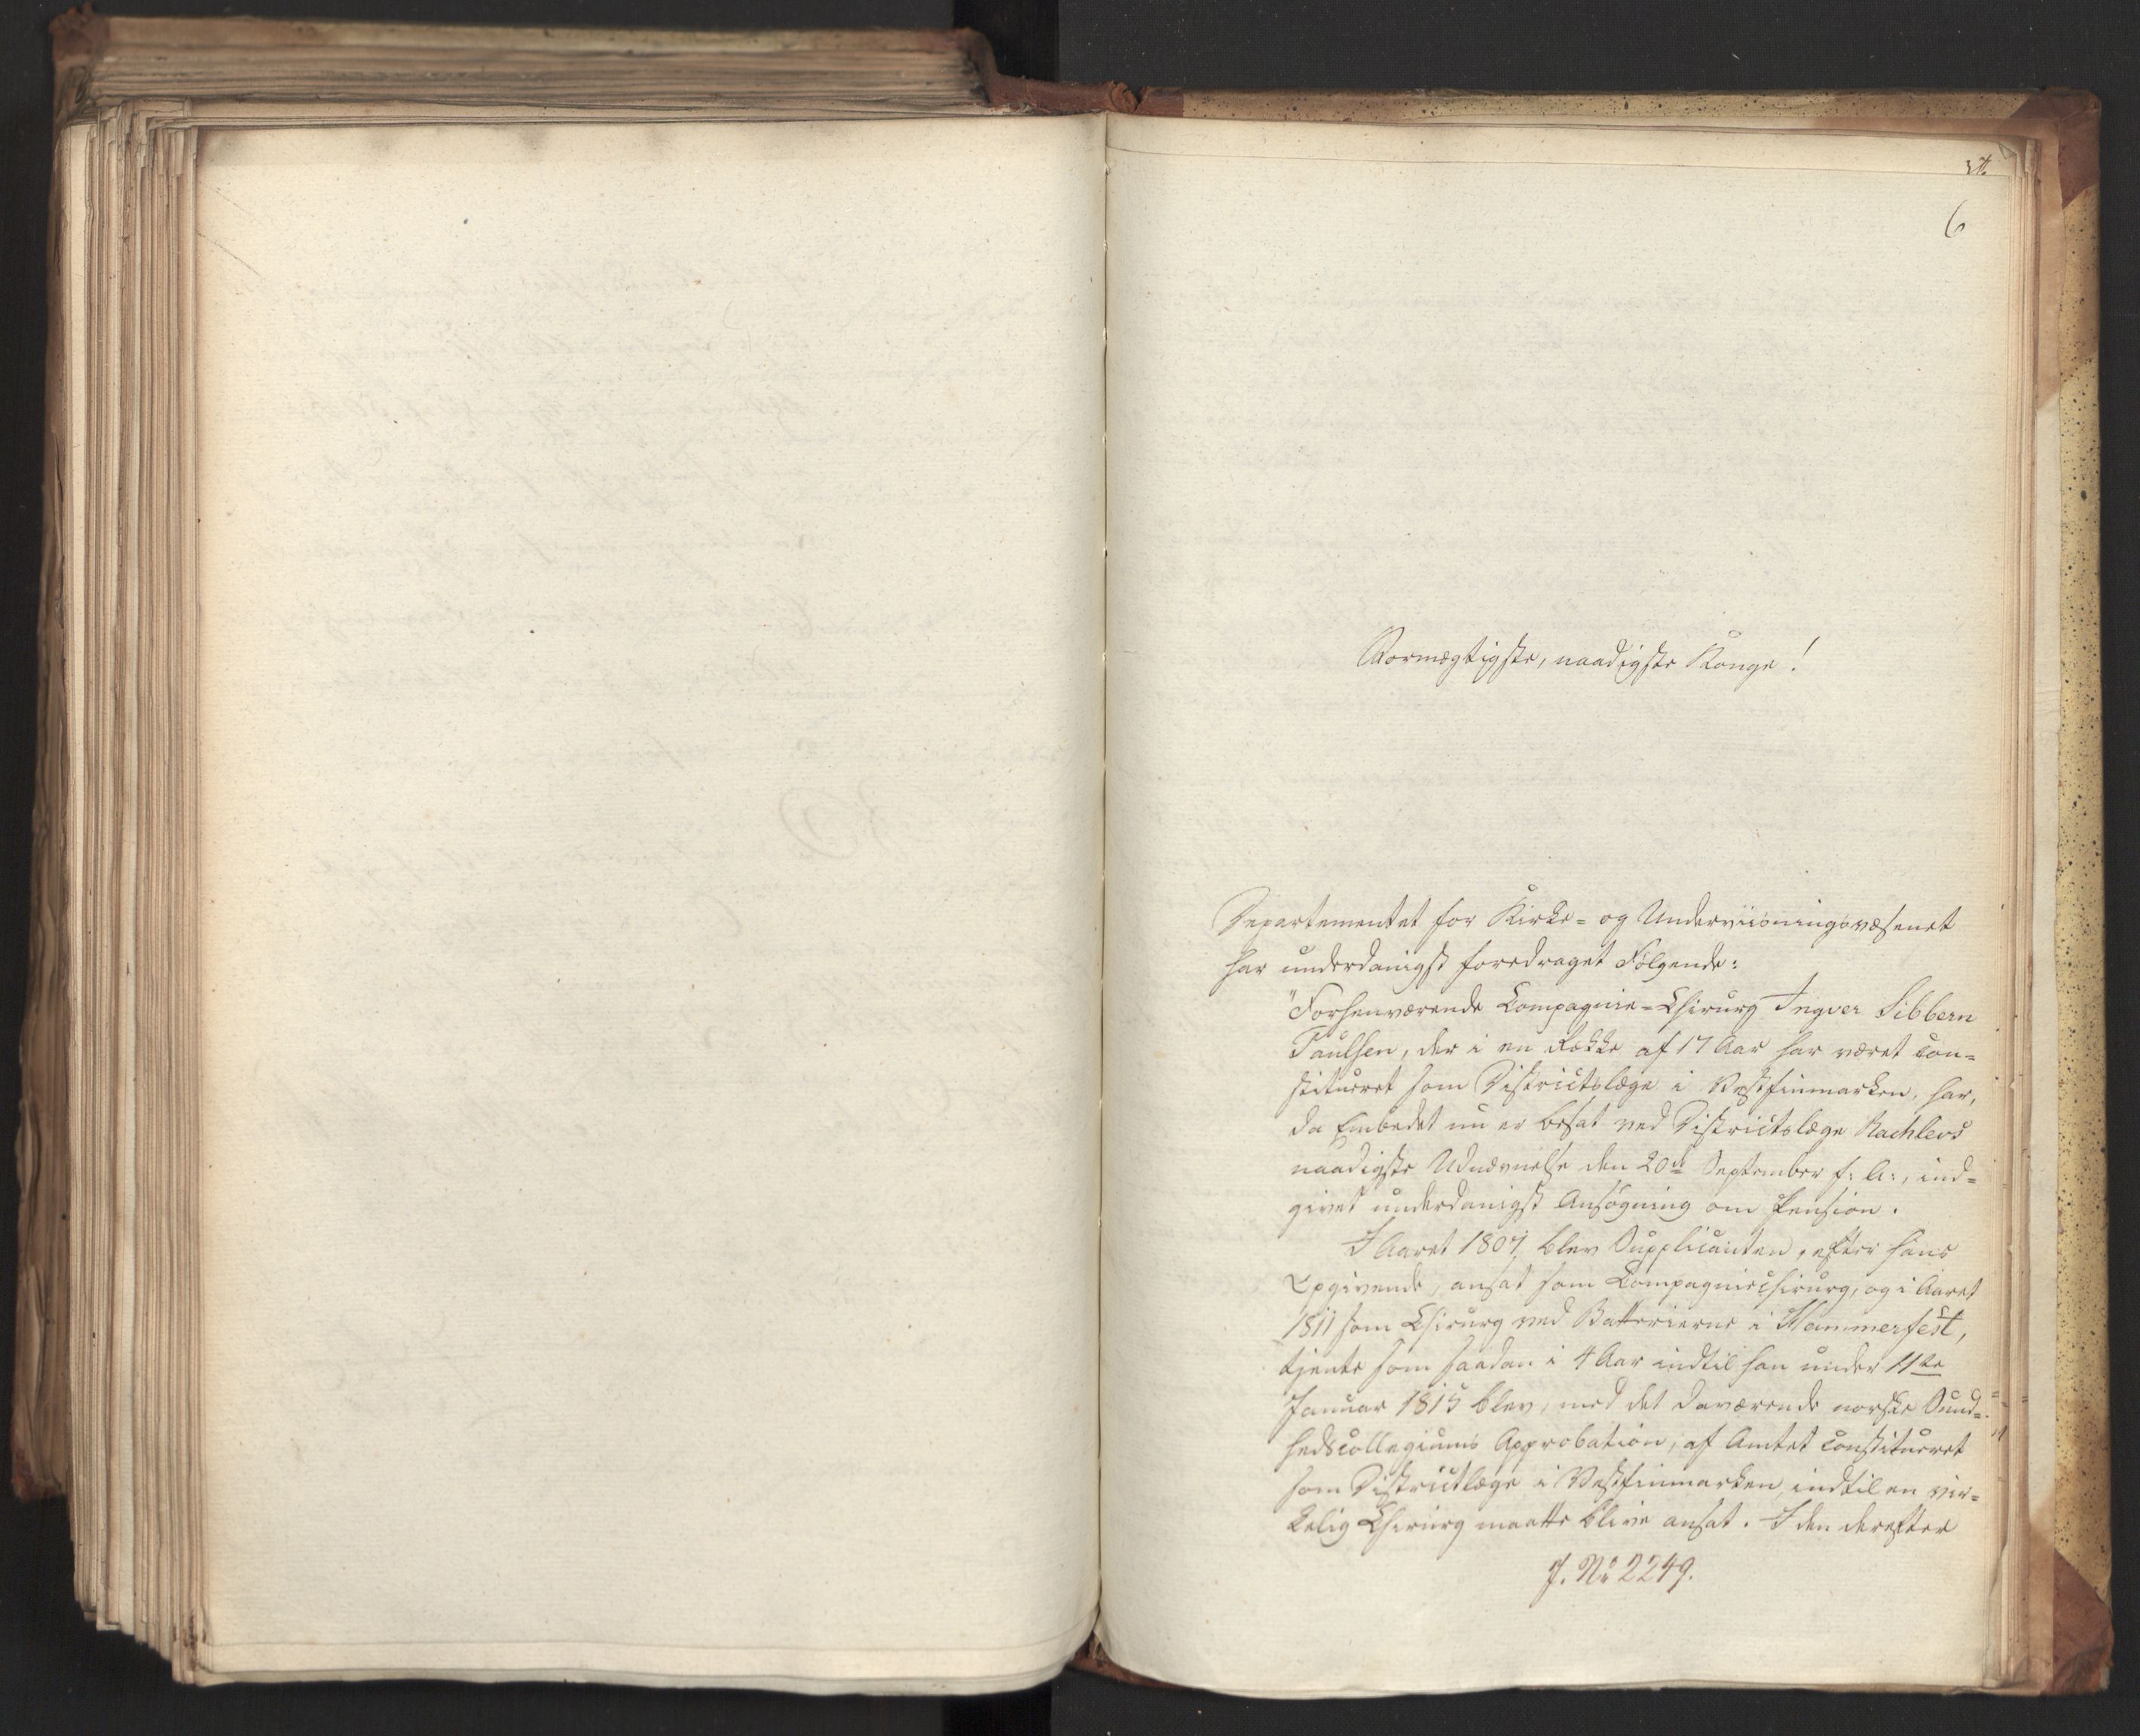 6
Stormægtigste, naadigste Konge!
Departementet for Kirke- og Underviisningsvæsenet
har underdanigst foredraget Følgende:
"Forhenværende Compagnie-Chirurg Ingver Sibbern
Paulsen, der i en Række af 17 Aar har været con-
stitueret som Districtslæge i Vestfinmarken, har,
da Embedet nu er besat ved Districtslæge
naadigste Udnævnelse den 20de September f: A:, ind-
givet underdanigst Ansøgning om Pension.
I Aaret 1807 blev Supplicanten, efter hans
Opgivende, ansat som Compagniechirurg, og i Aaret
1811 som Chirurg ved Batterierne i Hammerfest,
tjente som saadan i 4 Aar indtil han under 11te
Januar 1815 blev, med det daværende norske Sund-
hedscollegiums Approbation, af Amtet constitueret
som Districtlæge i Vestfinmarken, indtil en vir-
kelig Chirurg maatte blive ansat. I den derefter
J. No 2249.